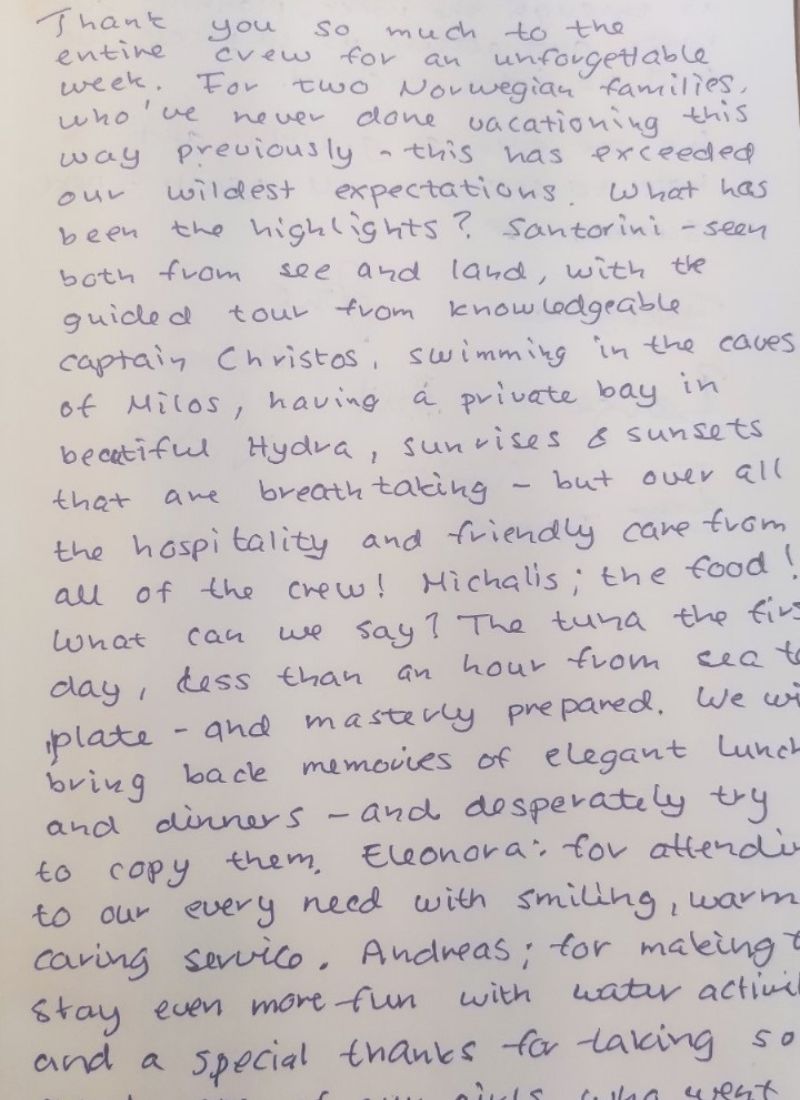 Thank you so much to the
entire crew for an unforgettable
week. For two Norwegian families,
who've never done vacationing this
way previously - this has exceeded
our wildest expectations. What has
been the highlights? Santorini - seen
both from see and land, with the
guided tour from knowledgeable
captain Christos, swimming in the caves
of Milos, having a private bay in
beautiful Hydra, sunrises & sunsets
that are breathtaking - but over all
the hospitality and friendly care from
all of the crew! Michalis; the food!
What can we say? The tuna the firs
day, less than an hour from sea to
plate - and masterly prepared. We wi
bring back memories of elegant lunch
and dinners - and desperately try
to copy them. Eleonora: for attendi
to our every need with smiling, warm
caring service. Andreas; for making t
stay even more fun with water activi
and a special thanks for taking so
girls who went